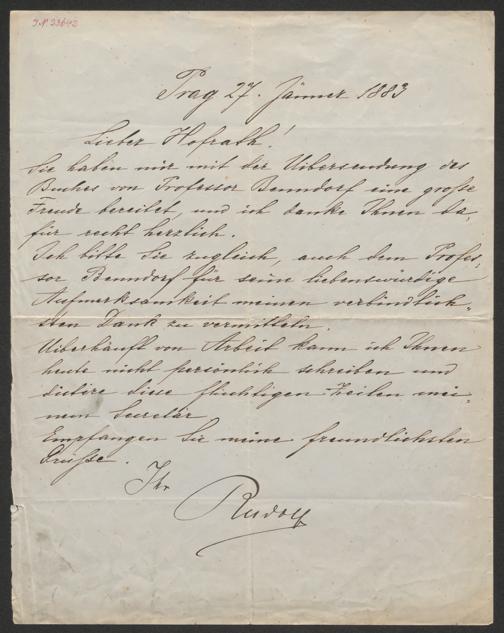 J.N. 23642
Prag 27. Jänner 1883
Lieber Hofrath!
Sie haben mir mit der Uibersendung des
Buches von Professor Benndorf eine große
Freude bereitet, und ich danke Ihnen da,
für recht herzlich.
Ich bitte Sie zugleich, auch dem Profes,
sor Benndorf für seine liebenswürdige
Aufmerksamkeit meinen verbindlich,
sten Dank zu vermitteln.
Uiberhäuft von Arbeit kann ich Ihnen
heute nicht persönlich schreiben und
dictire diese flüchtigen Zeilen mei,
nem Secretär
Empfangen Sie meine freundlichsten
Grüsse.
Ihr
Rudolf